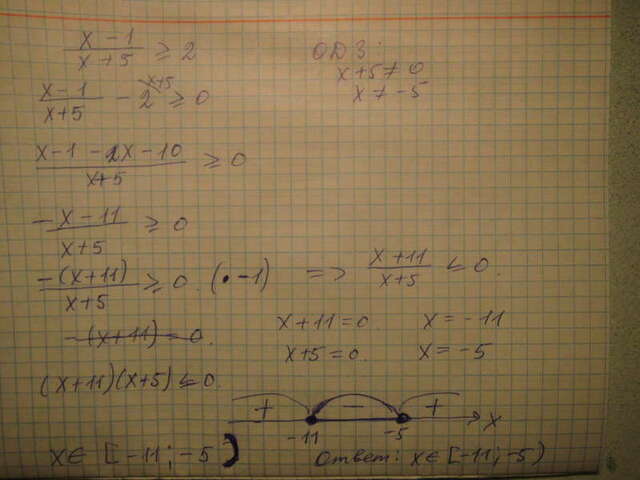 (x-1)/(x+5) ≥ 2
ОДЗ:
x+5 ≠ 0
x ≠ -5
(x-1)/(x+5) - 2^(x+5) ≥ 0
(x-1-2x-10)/(x+5) ≥ 0
(-x-11)/(x+5) ≥ 0
-(x+11)/(x+5) ≥ 0. (• -1) => (x+11)/(x+5) ≤ 0.
-(x+11) = 0.
x+11=0 x=-11
x+5=0. x=-5
(x+11)(x+5) ≤ 0.
+ - + x
-11 -5
x∈ [-11; -5)
Ответ: x∈[-11; -5)